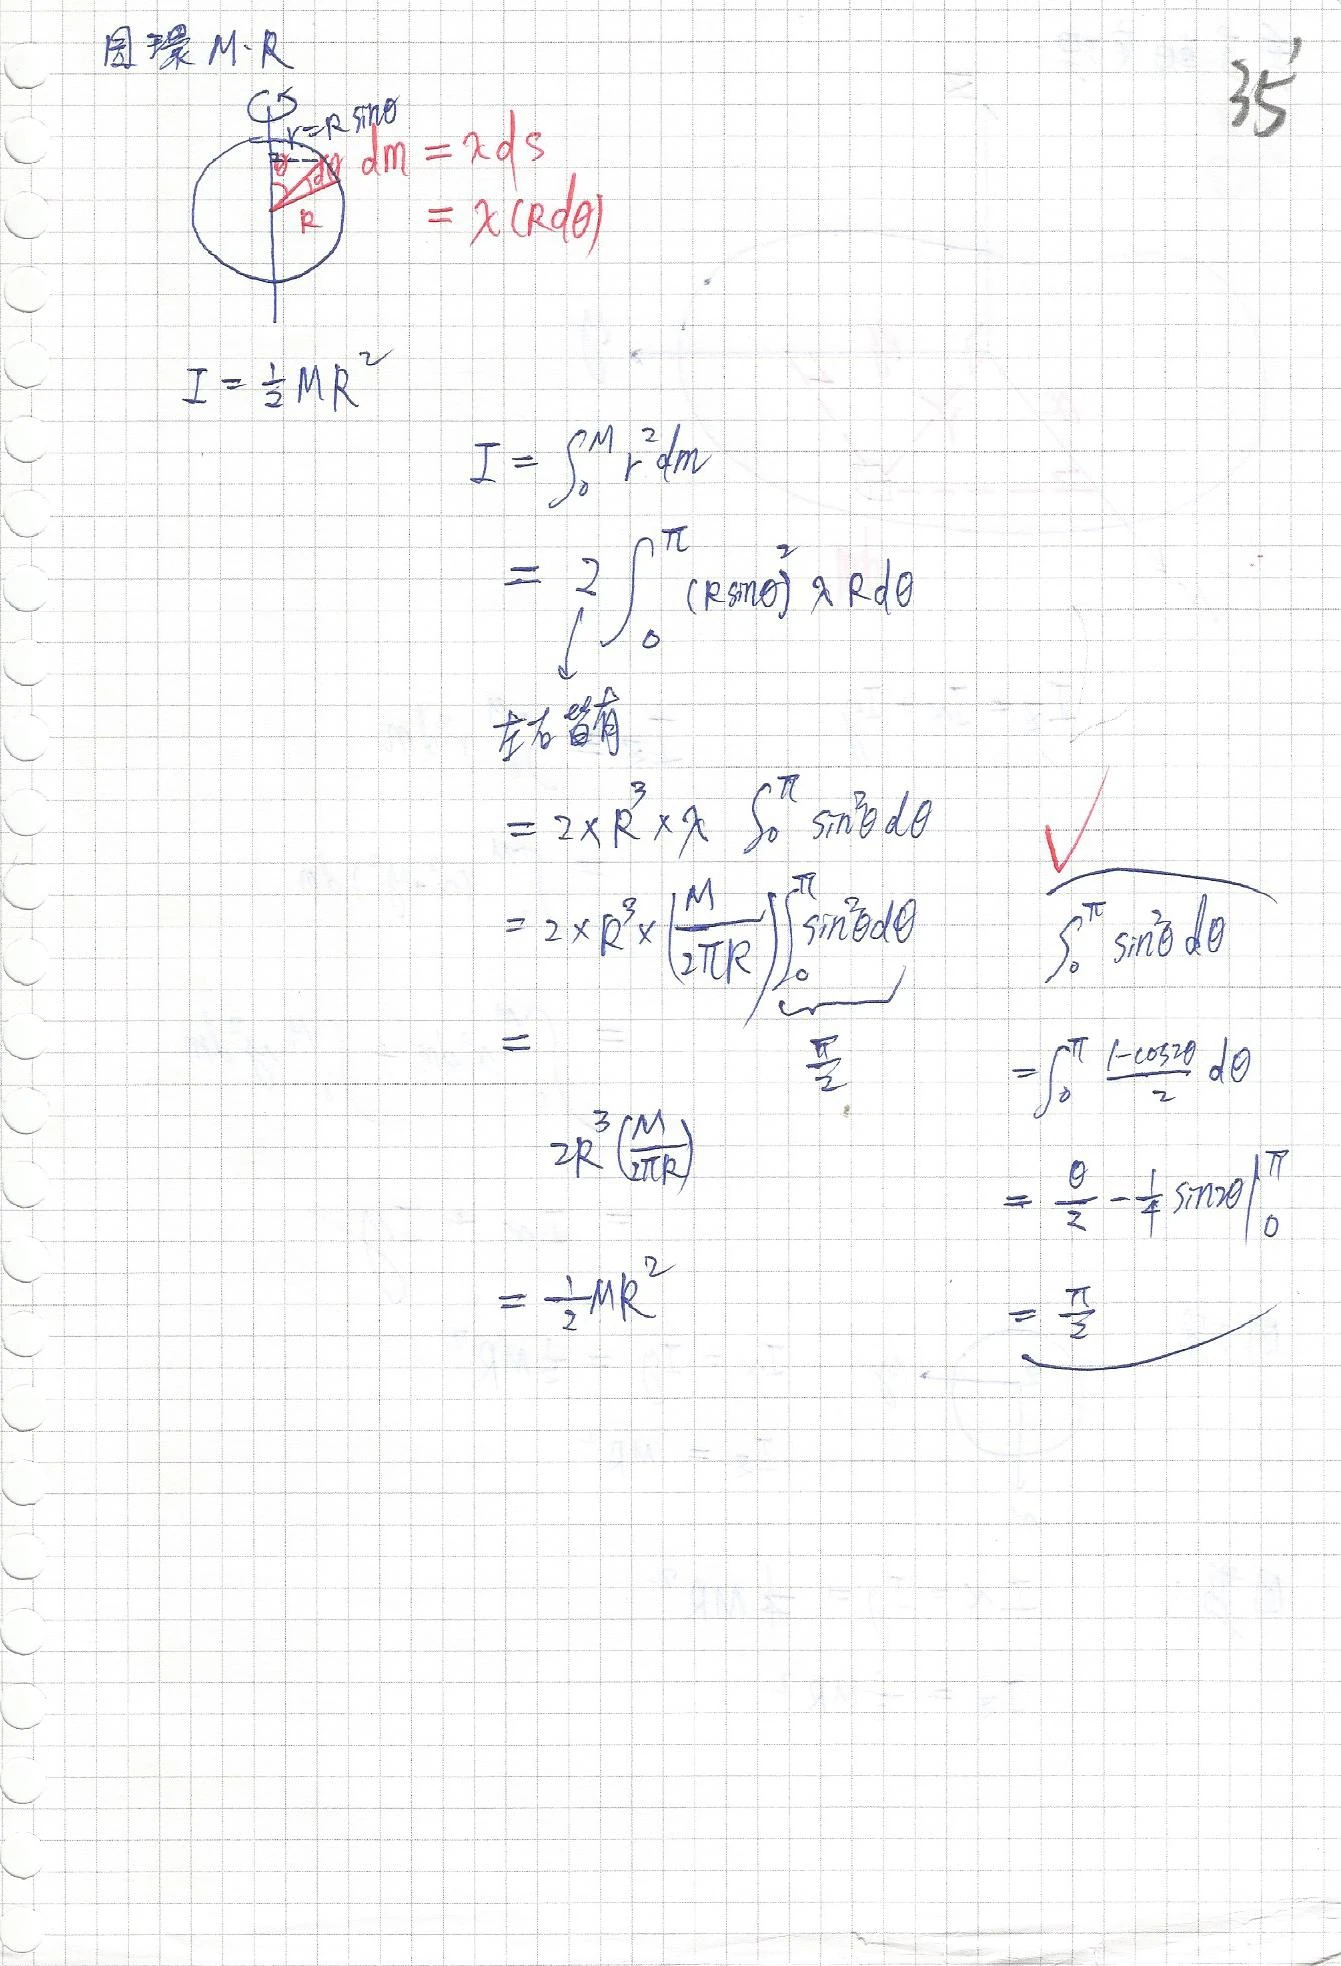 圓環 M.R
35'
r=R sinθ
θ dθ
dm = λds
R
= λ(Rdθ)
I = 1/2 MR²
I = ∫₀ᴹ r²dm
= 2 ∫₀^π (Rsinθ)² λRdθ
左右皆有
= 2×R³×λ ∫₀^π sin²θdθ
= 2×R³×(M/2πR)∫₀^π sin²θdθ
=
π/2
2R³(M/2πR)
= 1/2 MR²
∫₀^π sin²θdθ
= ∫₀^π (1-cos2θ)/2 dθ
= θ/2 - 1/4 sin2θ|₀^π
= π/2